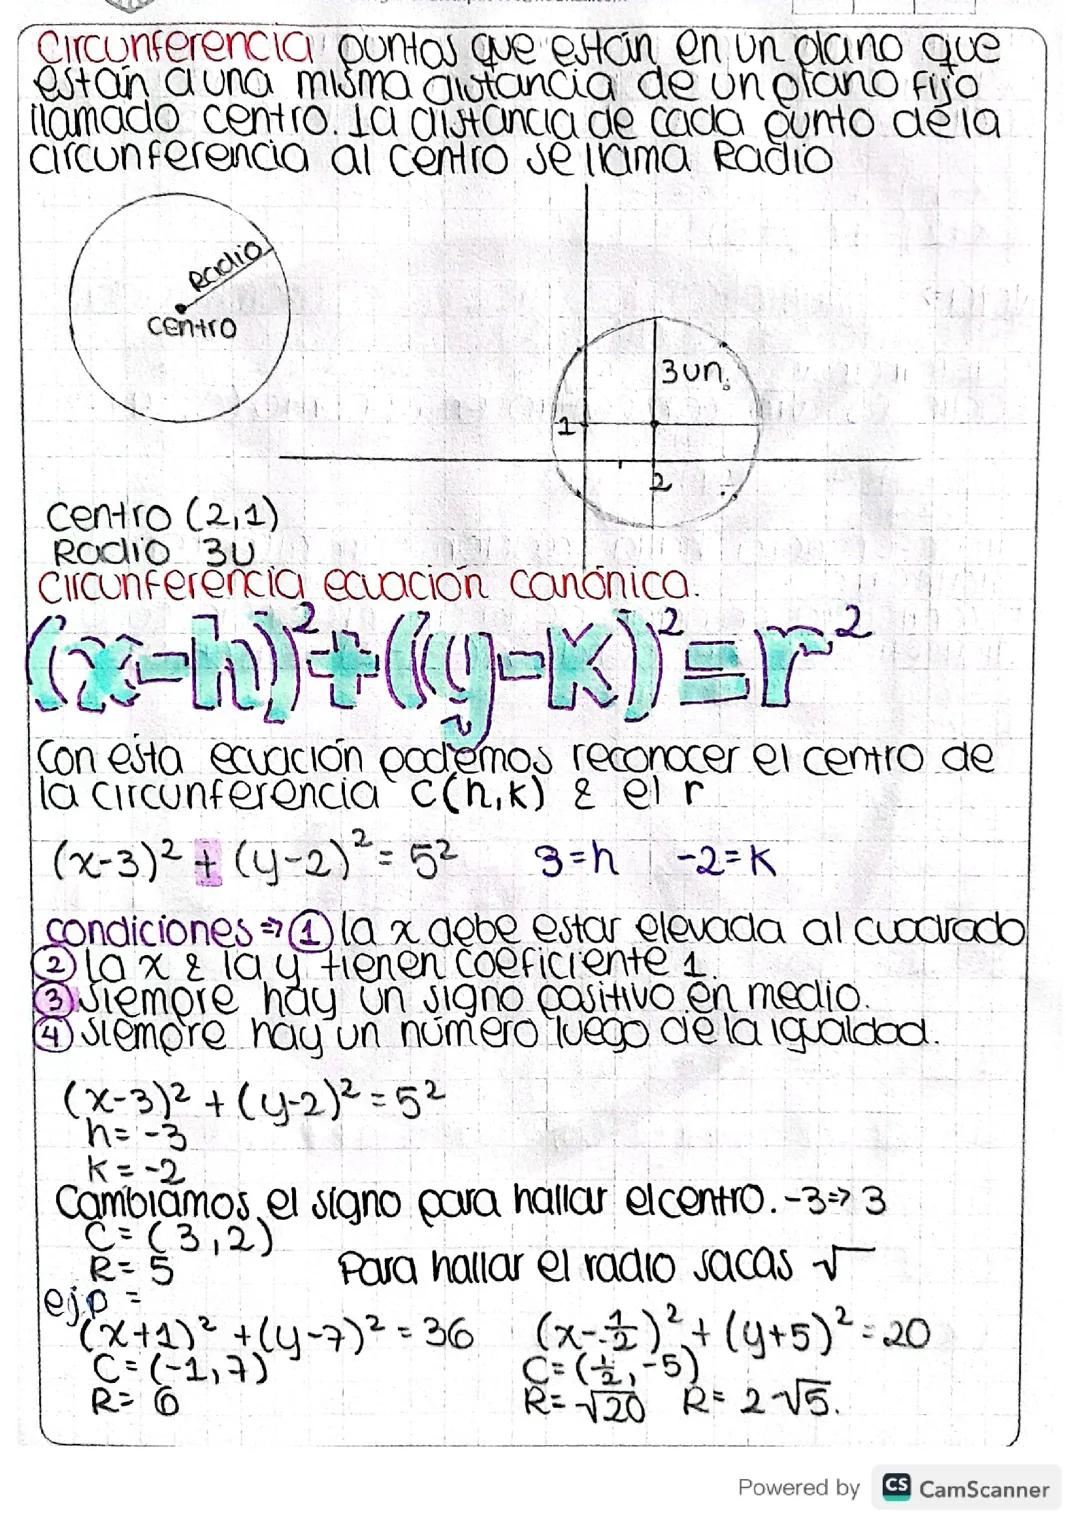 Circunferencia puntos que están en un plano que
están a una misma distancia de un plano fijo
llamado centro. La distancia de cada punto de la
circunferencia al centro se llama Radio
Radio
centro
3un.
1
2
Centro (2,1)
Radio 3U
Circunferencia ecuación canónica.
(x-h)²+(y-k)²=r²
Con esta ecuación podemos reconocer el centro de
la circunferencia c(h,k) & el r
(x-3)² + (y-2)² = 5² 3=h -2=k
condiciones ⇒ ① la x debe estar elevada al cuadrado
② la x & la y tienen coeficiente 1.
③ siempre hay un signo positivo en medio.
④ siempre hay un número luego de la igualdad.
(x-3)² + (y-2)² = 5²
h= -3
k= -2
Cambiamos el signo para hallar el centro. -3⇒ 3
C= (3,2)
R= 5 Para hallar el radio sacas √
ejp =
(x+1)² + (y-7)² = 36 (x-1/2)² + (y+5)² = 20
C= (-1,7) C= (1/2, -5)
R= 6 R= √20 R= 2√5.
Powered by CS CamScanner